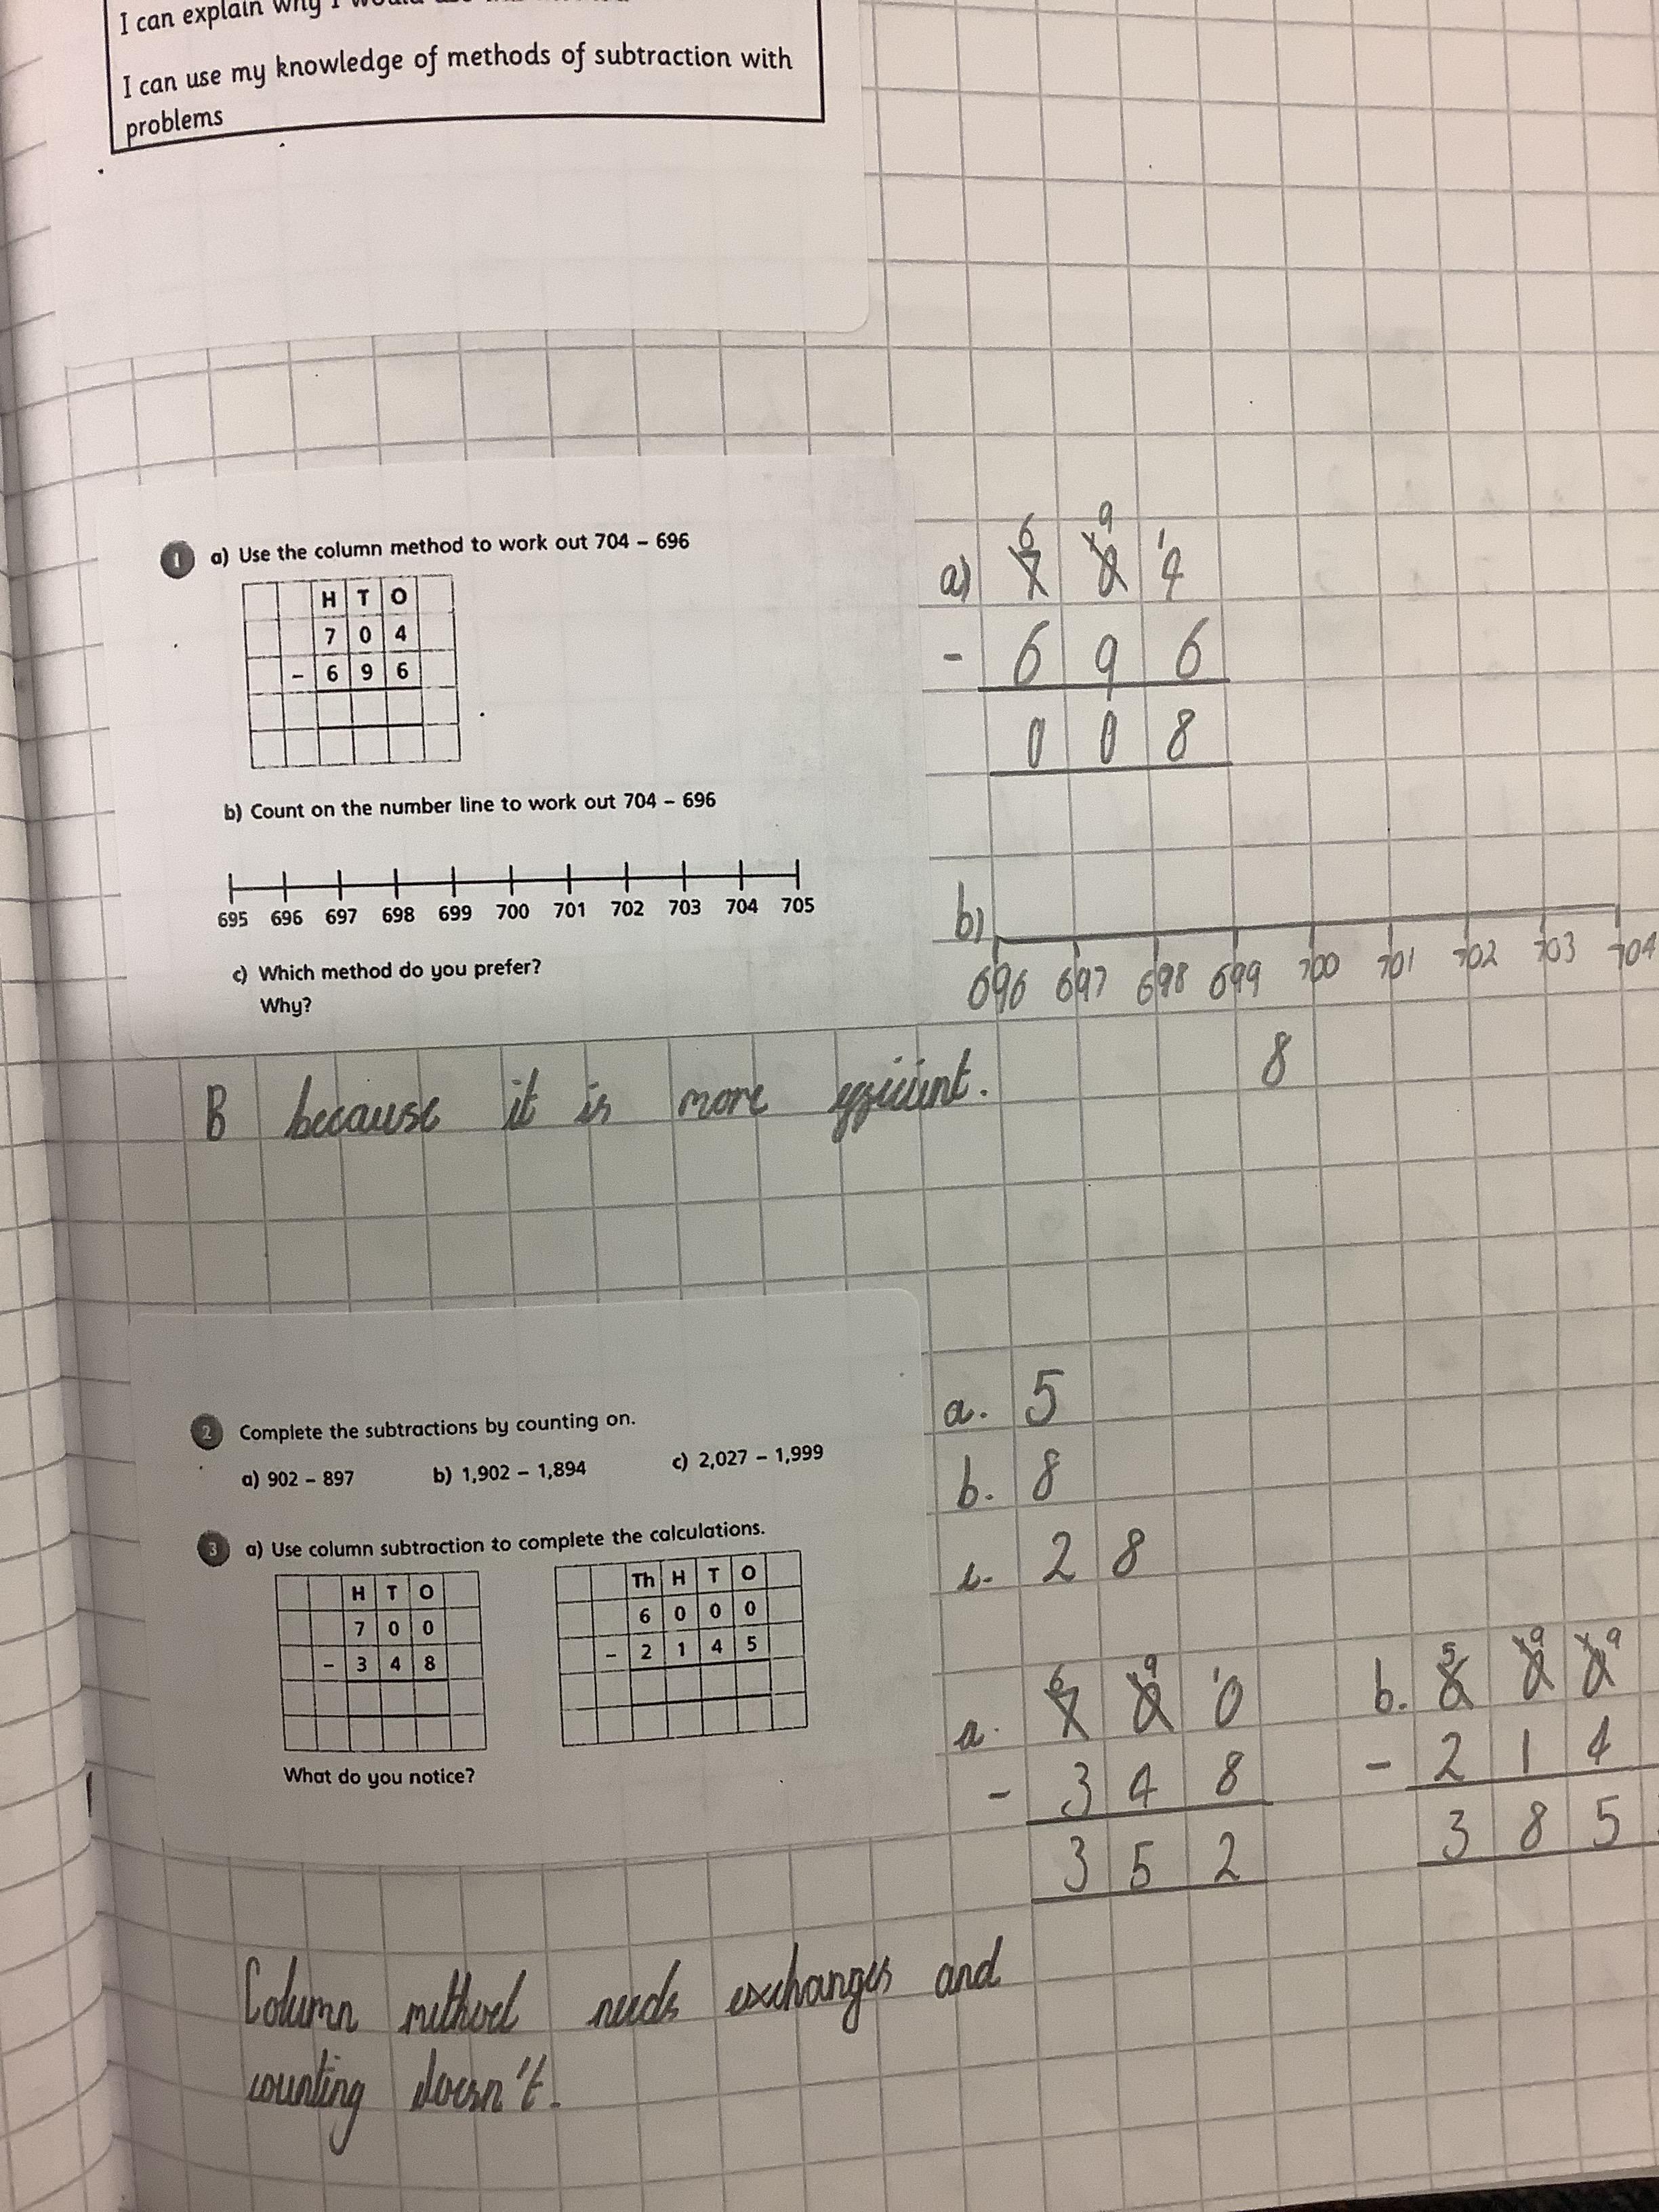 I can explain why I
I can use my knowledge of methods of subtraction with
problems
1 a) Use the column method to work out 704 – 696
H T O
7 0 4
– 6 9 6
b) Count on the number line to work out 704 – 696
695 696 697 698 699 700 701 702 703 704 705
c) Which method do you prefer?
Why?
a) 6 9
7 10 14
- 6 9 6
0 0 8
b)
696 697 698 699 700 701 702 703 704
8
B because it is more efficient.
2 Complete the subtractions by counting on.
a) 902 – 897 b) 1,902 – 1,894 c) 2,027 – 1,999
a. 5
b. 8
c. 28
3 a) Use column subtraction to complete the calculations.
H T O
7 0 0
– 3 4 8
Th H T O
6 0 0 0
– 2 1 4 5
What do you notice?
a. 6 9
7 10 10
- 3 4 8
3 5 2
b. 5 9 9
6 10 10
- 2 1 4
3 8 5
Column method needs exchanges and
counting doesn't.